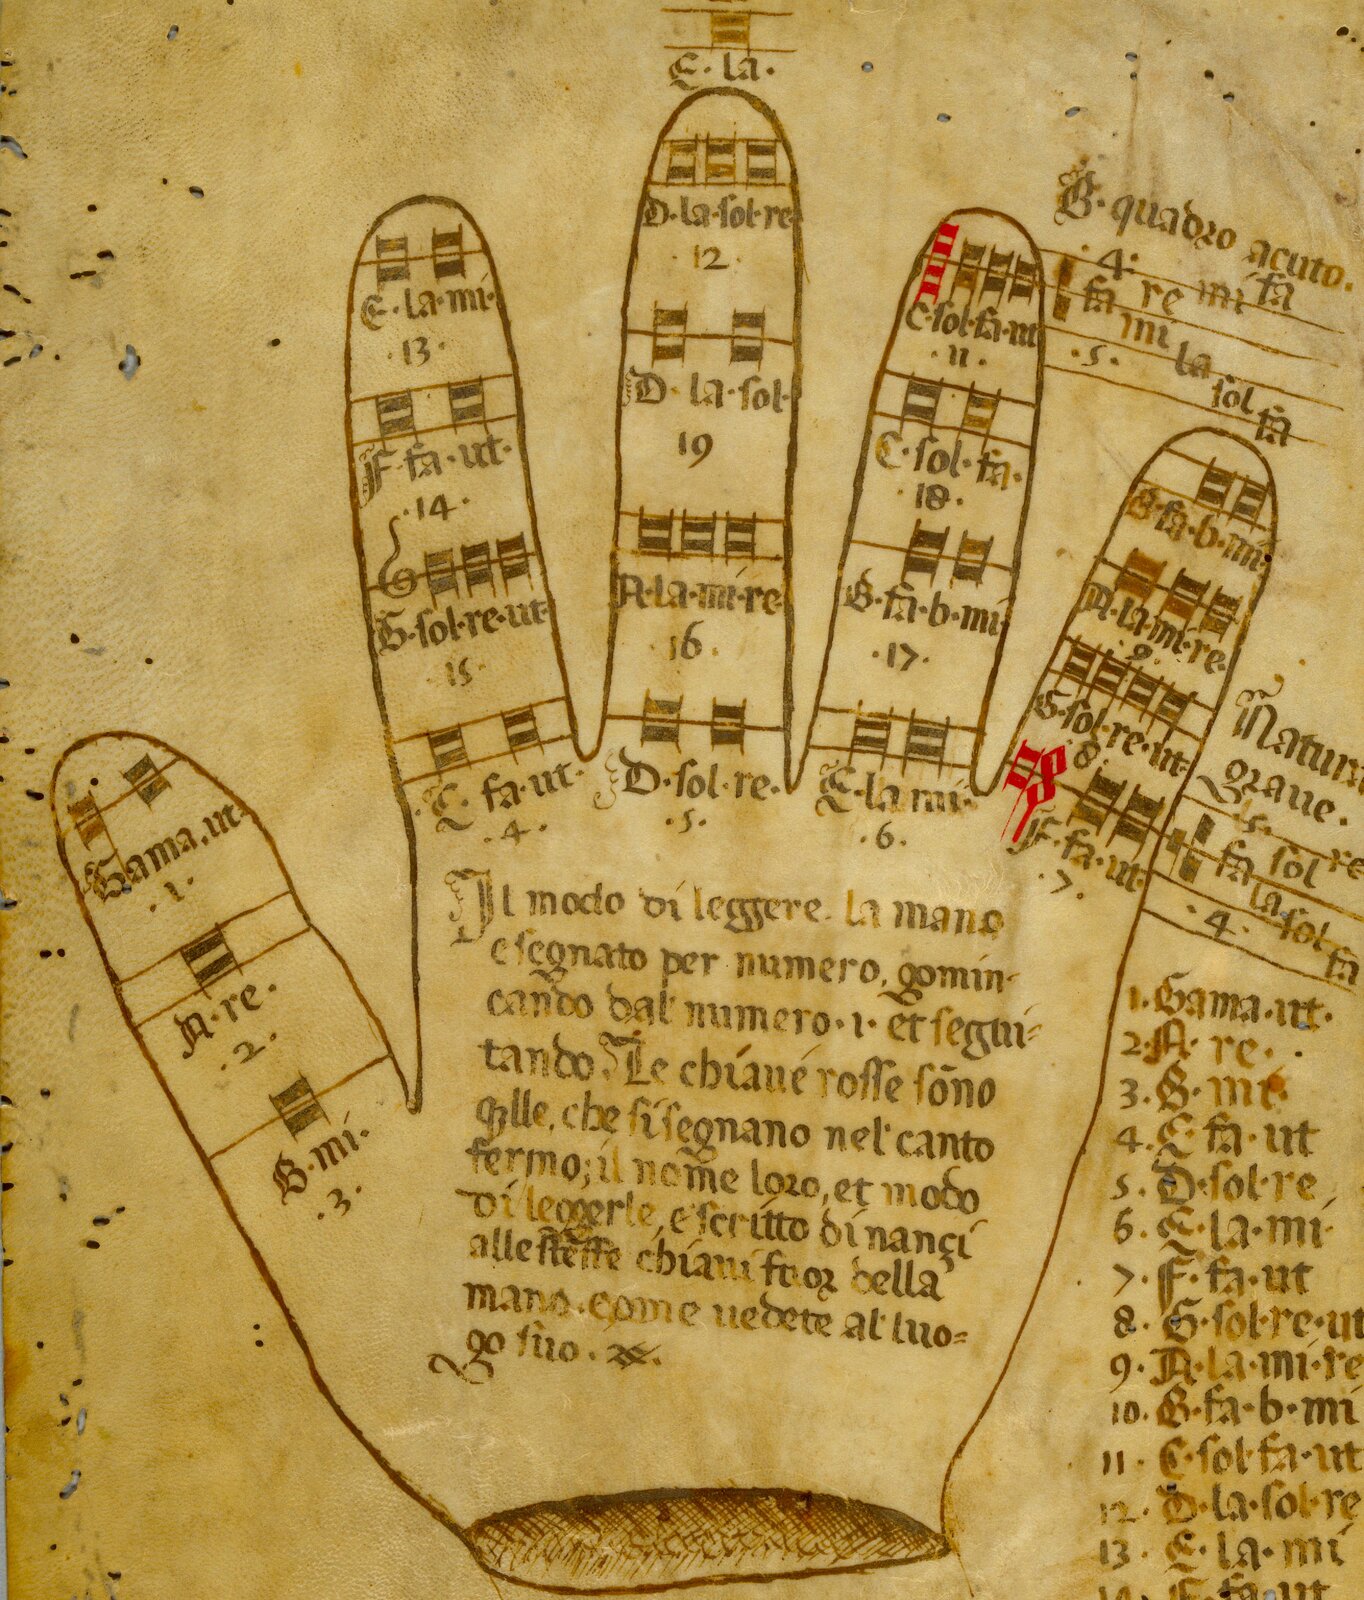 E·la·
D·la·sol·re
·12·
D·la·sol·
19
A·la·mi·re·
·16·
D·sol·re·
·5·
E·la·mi·
·13·
F·fa·ut·
·14·
G·sol·re·ut·
·15·
C·fa·ut·
·4·
C·sol·fa·ut
·11·
C·sol·fa·
·18·
B·fa·b·mi·
·17·
E·la mi·
·6·
B·fa·b·mi·
A·la·mi·re·
·9·
G·sol·re·ut·
·8·
F·fa·ut·
·7·
Gama·ut·
·1·
A·re·
·2·
B·mi·
·3·
B·quadro acuto·
·4·
fa re mi fa
mi la sol fa
·5·
Natura
graue·
·5·
fa sol re
la sol fa
·4·
Il modo di leggere· la mano
e segnato per numero, gomin-
cando dal numero·1· et segui-
tando Le chiaue rosse sōno
qlle, che si segnano nel canto
fermo; il nome loro, et modo
di leggerle, e scritto dinançi
alle steffe chiaui fuor della
mano·come uedete al luo=
go suo·
1·Gama·ut·
2·A·re·
3·B·mi·
4·C·fa·ut
5·D·sol·re
6·E·la·mi·
7·F·fa·ut
8·G·sol·re·ut
9·A·la·mi·re
10·B·fa·b·mi
11·C·sol fa·ut
12·D·la·sol·re
13·E·la·mi
14·F·fa·ut